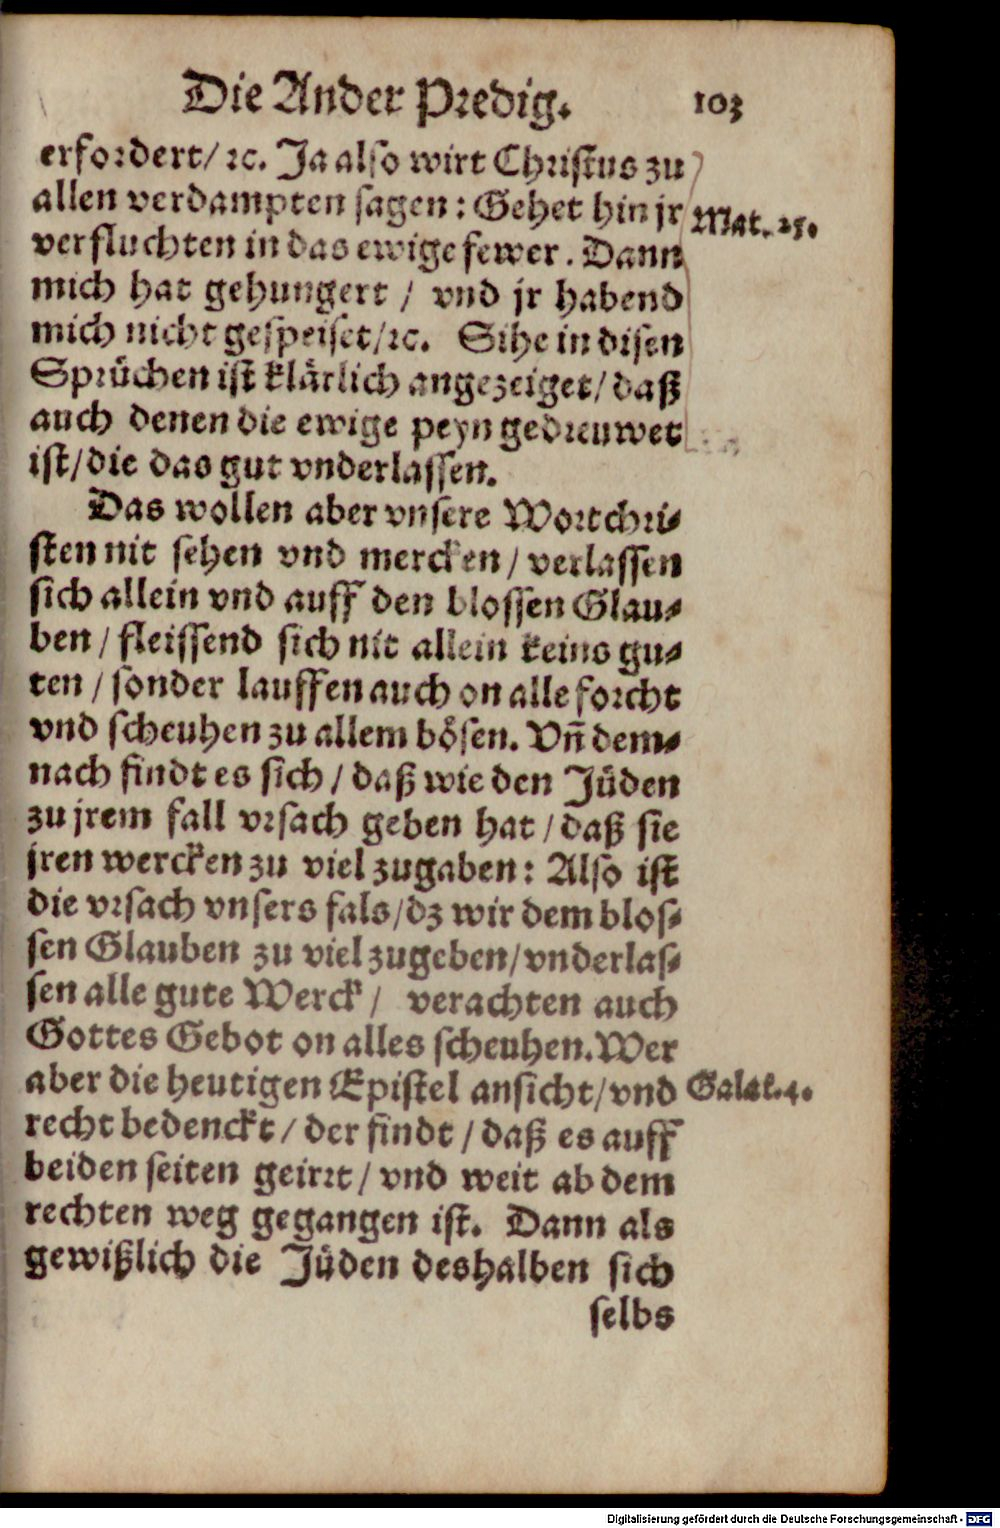 Die Ander Predig. 103
erfordert/ ꝛc. Ja also wirt Christus zu
allen verdampten sagen: Gehet hin jr Mat. 25.
verfluchten in das ewige fewer. Dann
mich hat gehungert / vnd jr habend
mich nicht gespeiset/ꝛc. Sihe in disen
Sprüchen ist klärlich angezeiget/ daß
auch denen die ewige peyn gedreuwet
ist/die das gut vnderlassen.
Das wollen aber vnsere Wortchri-
sten nit sehen vnd mercken / verlassen
sich allein vnd auff den blossen Glau-
ben / fleissend sich nit allein keins gu-
ten / sonder lauffen auch on alle forcht
vnd scheuhen zu allem bösen. Vñ dem-
nach findt es sich / daß wie den Jüden
zu jrem fall vrsach geben hat / daß sie
jren wercken zu viel zugaben: Also ist
die vrsach vnsers fals/dz wir dem blos-
sen Glauben zu viel zugeben/vnderlas-
sen alle gute Werck / verachten auch
Gottes Gebot on alles scheuhen. Wer
aber die heutigen Epistel ansicht/vnd Galat. 4.
recht bedenckt / der findt / daß es auff
beiden seiten geirrt / vnd weit ab dem
rechten weg gegangen ist. Dann als
gewißlich die Jüden deshalben sich
selbs
Digitalisierung gefördert durch die Deutsche Forschungsgemeinschaft - DFG